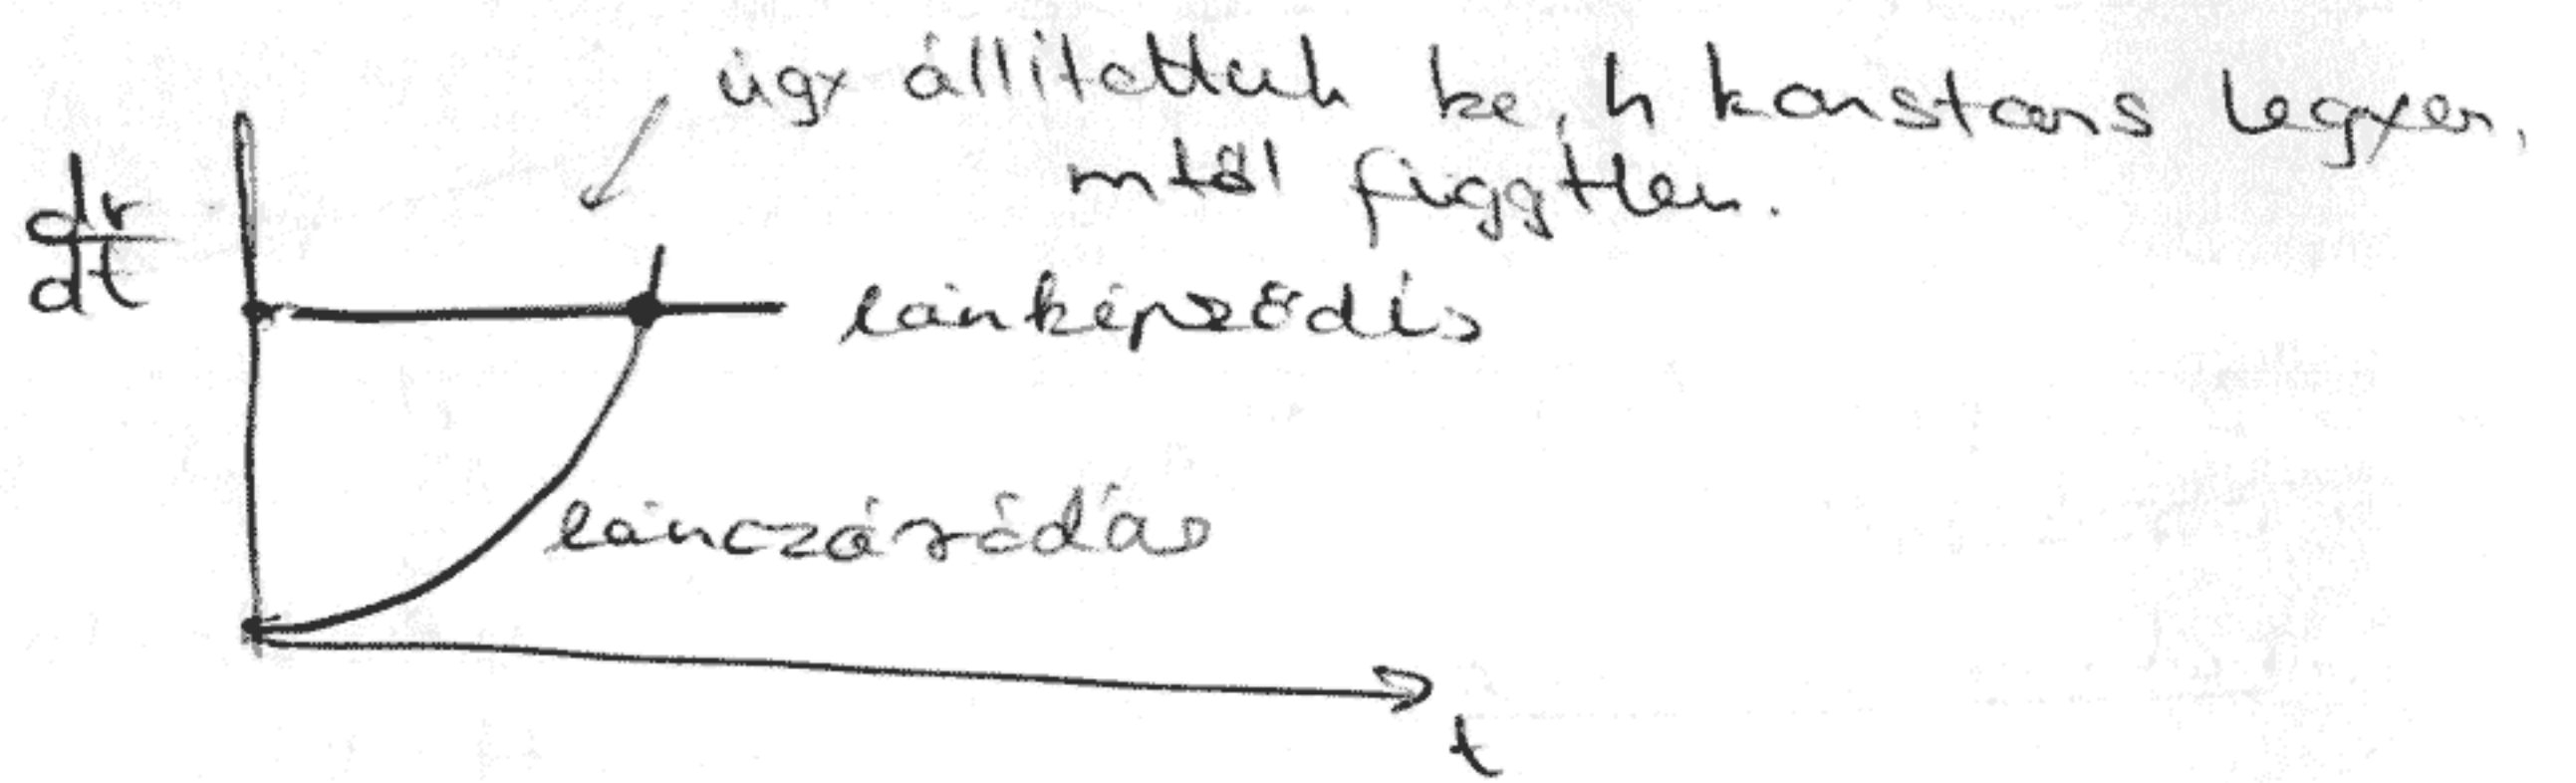 úgy állítottuk be, h konstans legyen,
mtől függtlen.
dr
dt
lánképződés
lánczáródás
t